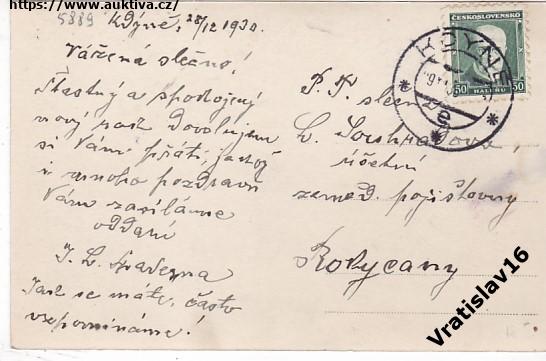 https://www.auktiva.cz/
5889
Kdyně, 28/12 1930.
Vážená slečno!
Šťastný a spokojený
nový rok Dovolujem
si Vám přáti, jakož
i mnoho pozdravů
Vám zasíláme
oddaní
J. L.
Jak se máte, často
vzpomínáme!
ČESKOSLOVENSKO
50 HALÉŘŮ 50
KDYNĚ
P. T. slečna
L.
účetní
zeměd. pojišťovny
Rokycany
Vratislav16